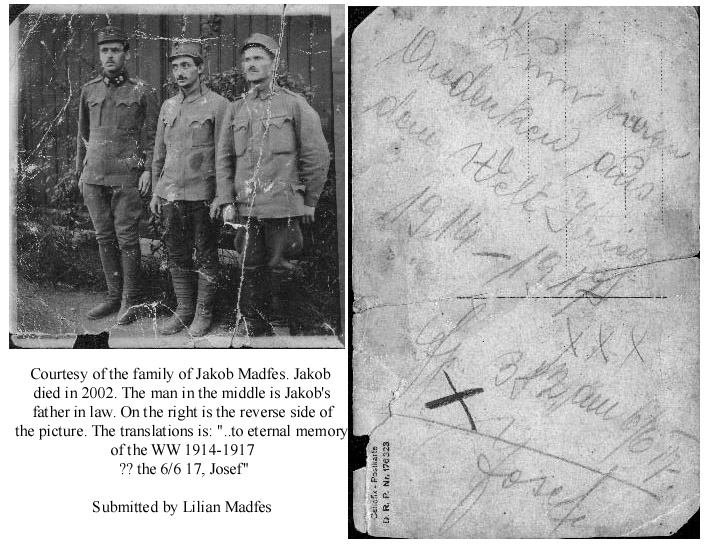 Courtesy of the family of Jakob Madfes. Jakob
died in 2002. The man in the middle is Jakob's
father in law. On the right is the reverse side of
the picture. The translations is: "..to eternal memory
of the WW 1914-1917
?? the 6/6 17, Josef"
Submitted by Lilian Madfes
Zum
Andenken aus
dem Welt
1914-1917
XXX
Josef
D. R. P. Nr. 176323